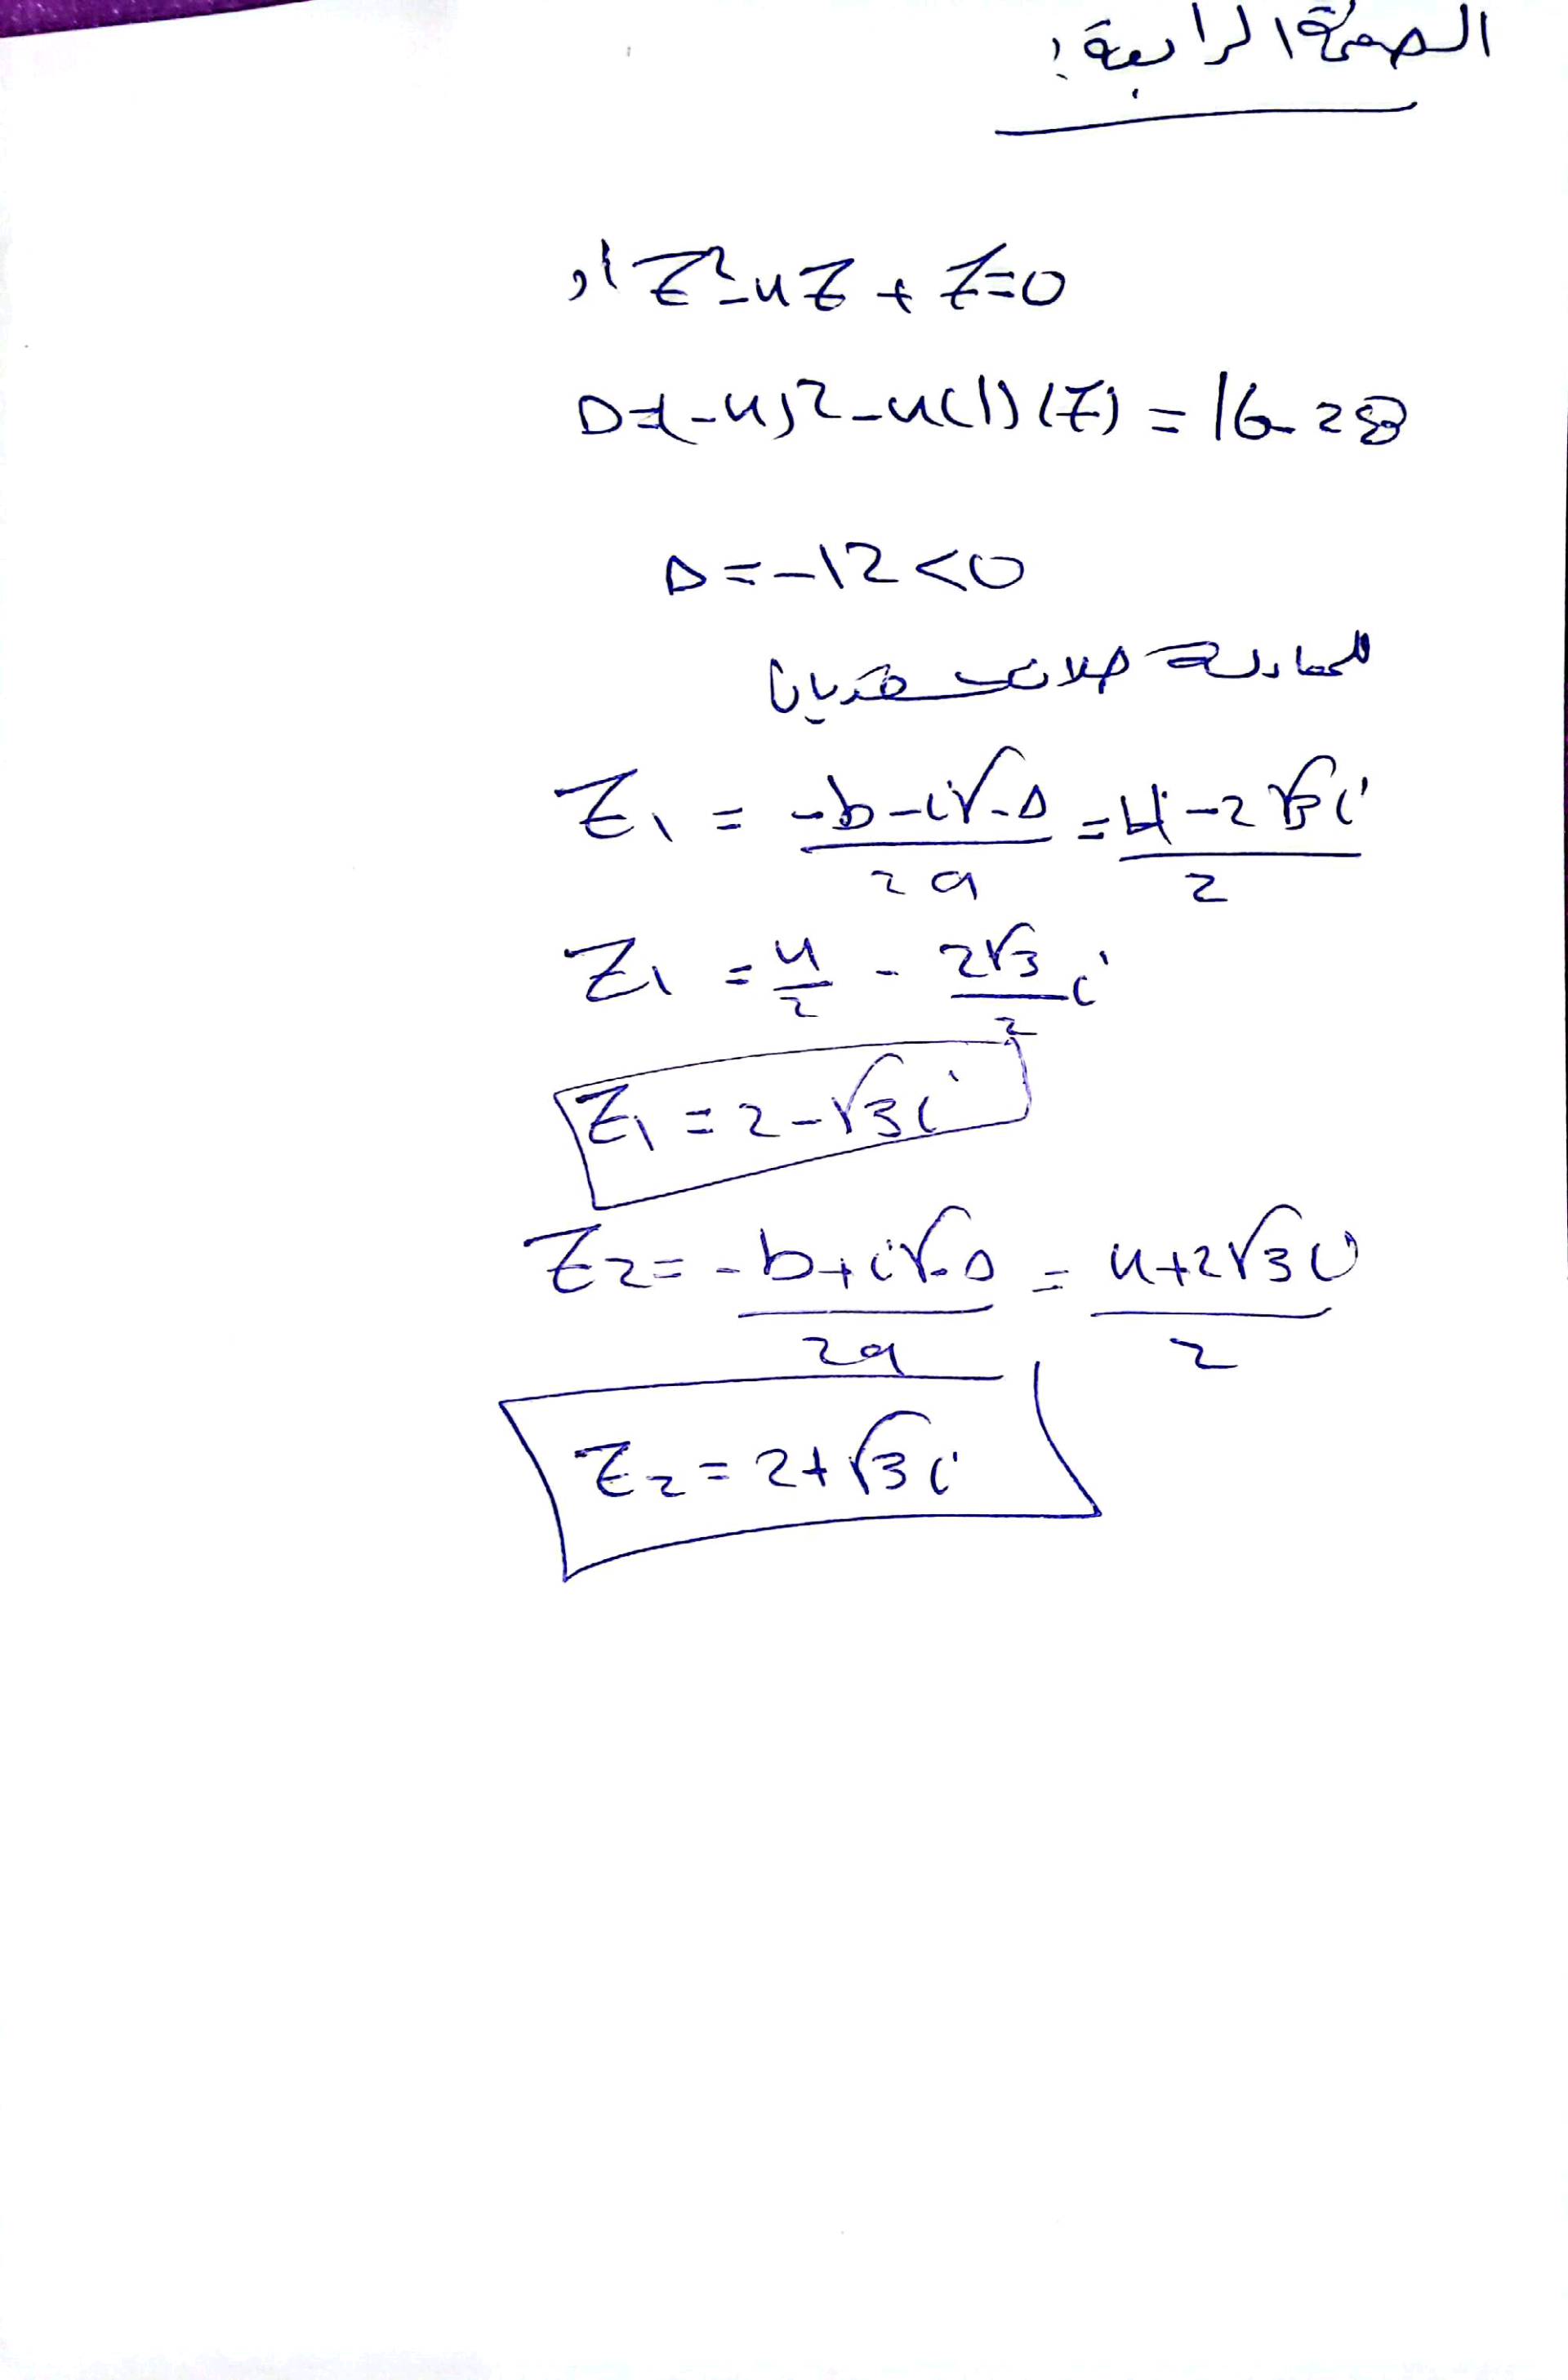 الصفحة الرابعة:
أو Z²-4Z+7=0
Δ=(-4)²-4(1)(7)=16-28
Δ=-12<0
للمعادلة حلان عقديان
Z₁ = (-b-i√-Δ)/2a = (4-2√3i)/2
Z₁ = 4/2 - 2√3/2 i
Z₁ = 2-√3i
Z₂ = (-b+i√-Δ)/2a = (4+2√3i)/2
Z₂ = 2+√3i